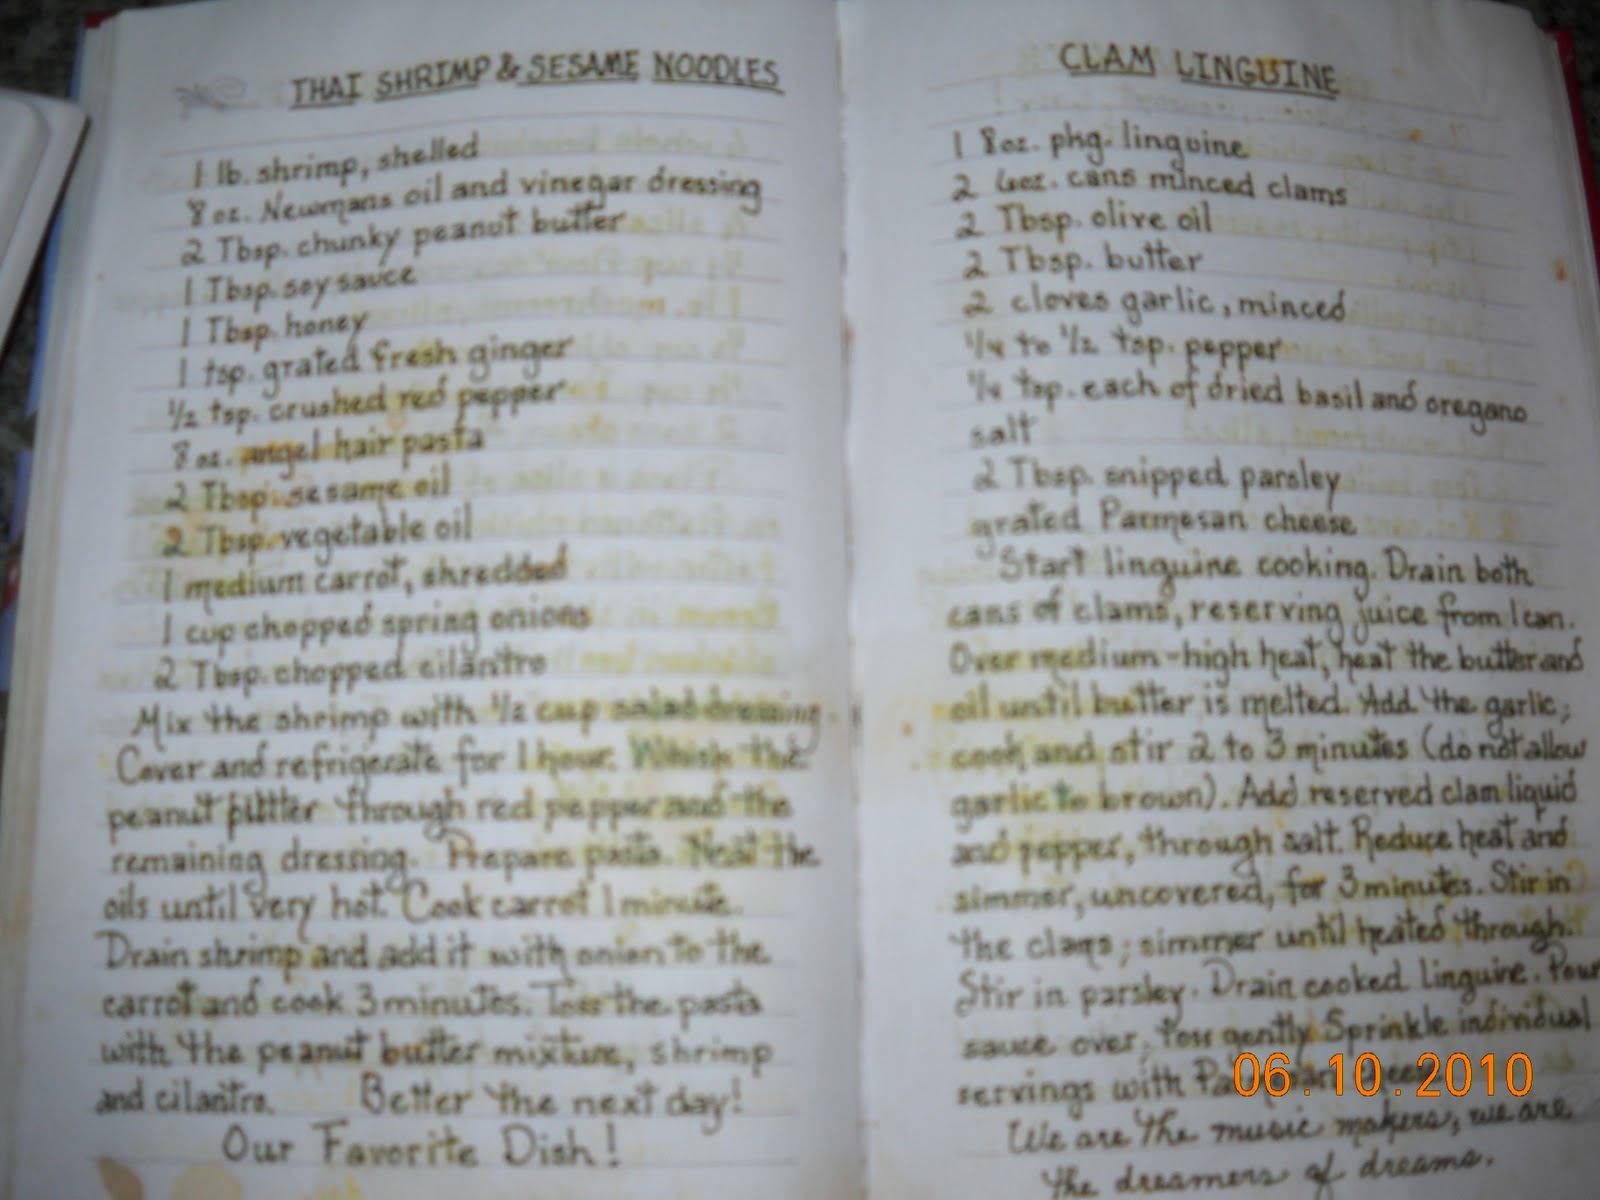 THAI SHRIMP & SESAME NOODLES
1 lb. shrimp, shelled
8 oz. Newmans oil and vinegar dressing
2 Tbsp. chunky peanut butter
1 Tbsp. soy sauce
1 Tbsp. honey
1 tsp. grated fresh ginger
1/2 tsp. crushed red pepper
8 oz. angel hair pasta
2 Tbsp. sesame oil
2 Tbsp. vegetable oil
1 medium carrot, shredded
1 cup chopped spring onions
2 Tbsp. chopped cilantro
Mix the shrimp with 1/2 cup salad dressing.
Cover and refrigerate for 1 hour. Whisk the
peanut butter through red pepper and the
remaining dressing. Prepare pasta. Heat the
oils until very hot. Cook carrot 1 minute.
Drain shrimp and add it with onion to the
carrot and cook 3 minutes. Toss the pasta
with the peanut butter mixture, shrimp
and cilantro. Better the next day!
Our Favorite Dish!
CLAM LINGUINE
1 8oz. pkg. linguine
2 6oz. cans minced clams
2 Tbsp. olive oil
2 Tbsp. butter
2 cloves garlic, minced
1/4 to 1/2 tsp. pepper
1/4 tsp. each of dried basil and oregano
salt
2 Tbsp. snipped parsley
grated Parmesan cheese
Start linguine cooking. Drain both
cans of clams, reserving juice from 1 can.
Over medium-high heat, heat the butter and
oil until butter is melted. Add the garlic;
cook and stir 2 to 3 minutes (do not allow
garlic to brown). Add reserved clam liquid
and pepper, through salt. Reduce heat and
simmer, uncovered, for 3 minutes. Stir in
the clams; simmer until heated through.
Stir in parsley. Drain cooked linguine. Pour
sauce over, toss gently. Sprinkle individual
servings with
We are the music makers, we are
the dreamers of dreams.
06.10.2010